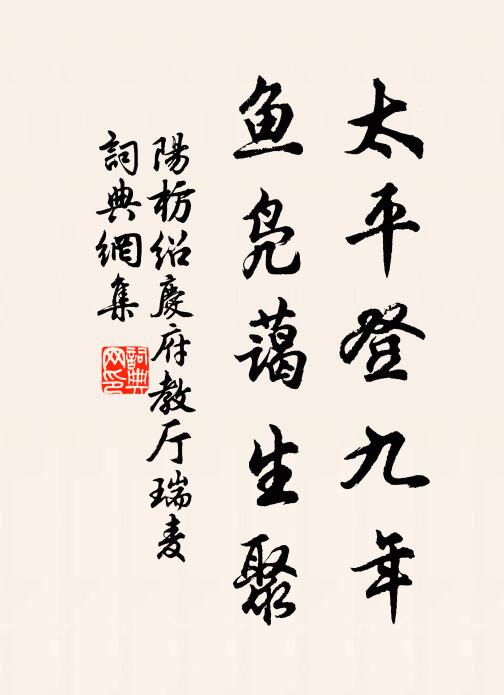 太平登九年
鱼凫蔼生聚
陽枋绍慶府教厅瑞麦
詞典網集
詞典网印